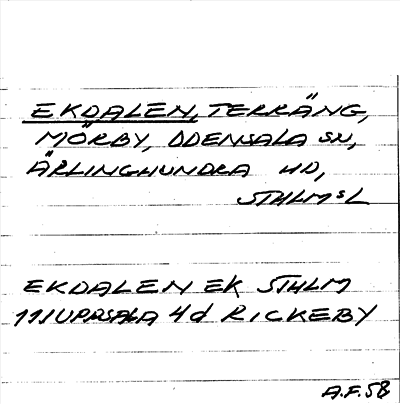 EKDALEN, TERRÄNG,
MÖRBY, ODENSALA SN,
ÄRLINGHUNDRA HD,
STHLMS L
EKDALEN EK STHLM
111 UPPSALA 4d RICKEBY
A.F. 58